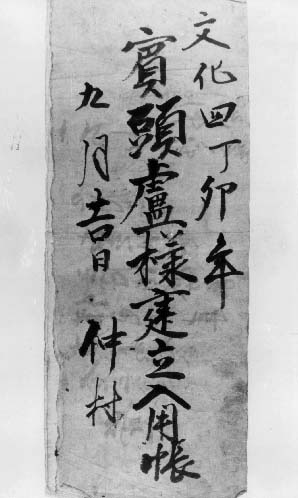 文化四丁卯年
賓頭盧様建立入用帳
九月吉日 仲村